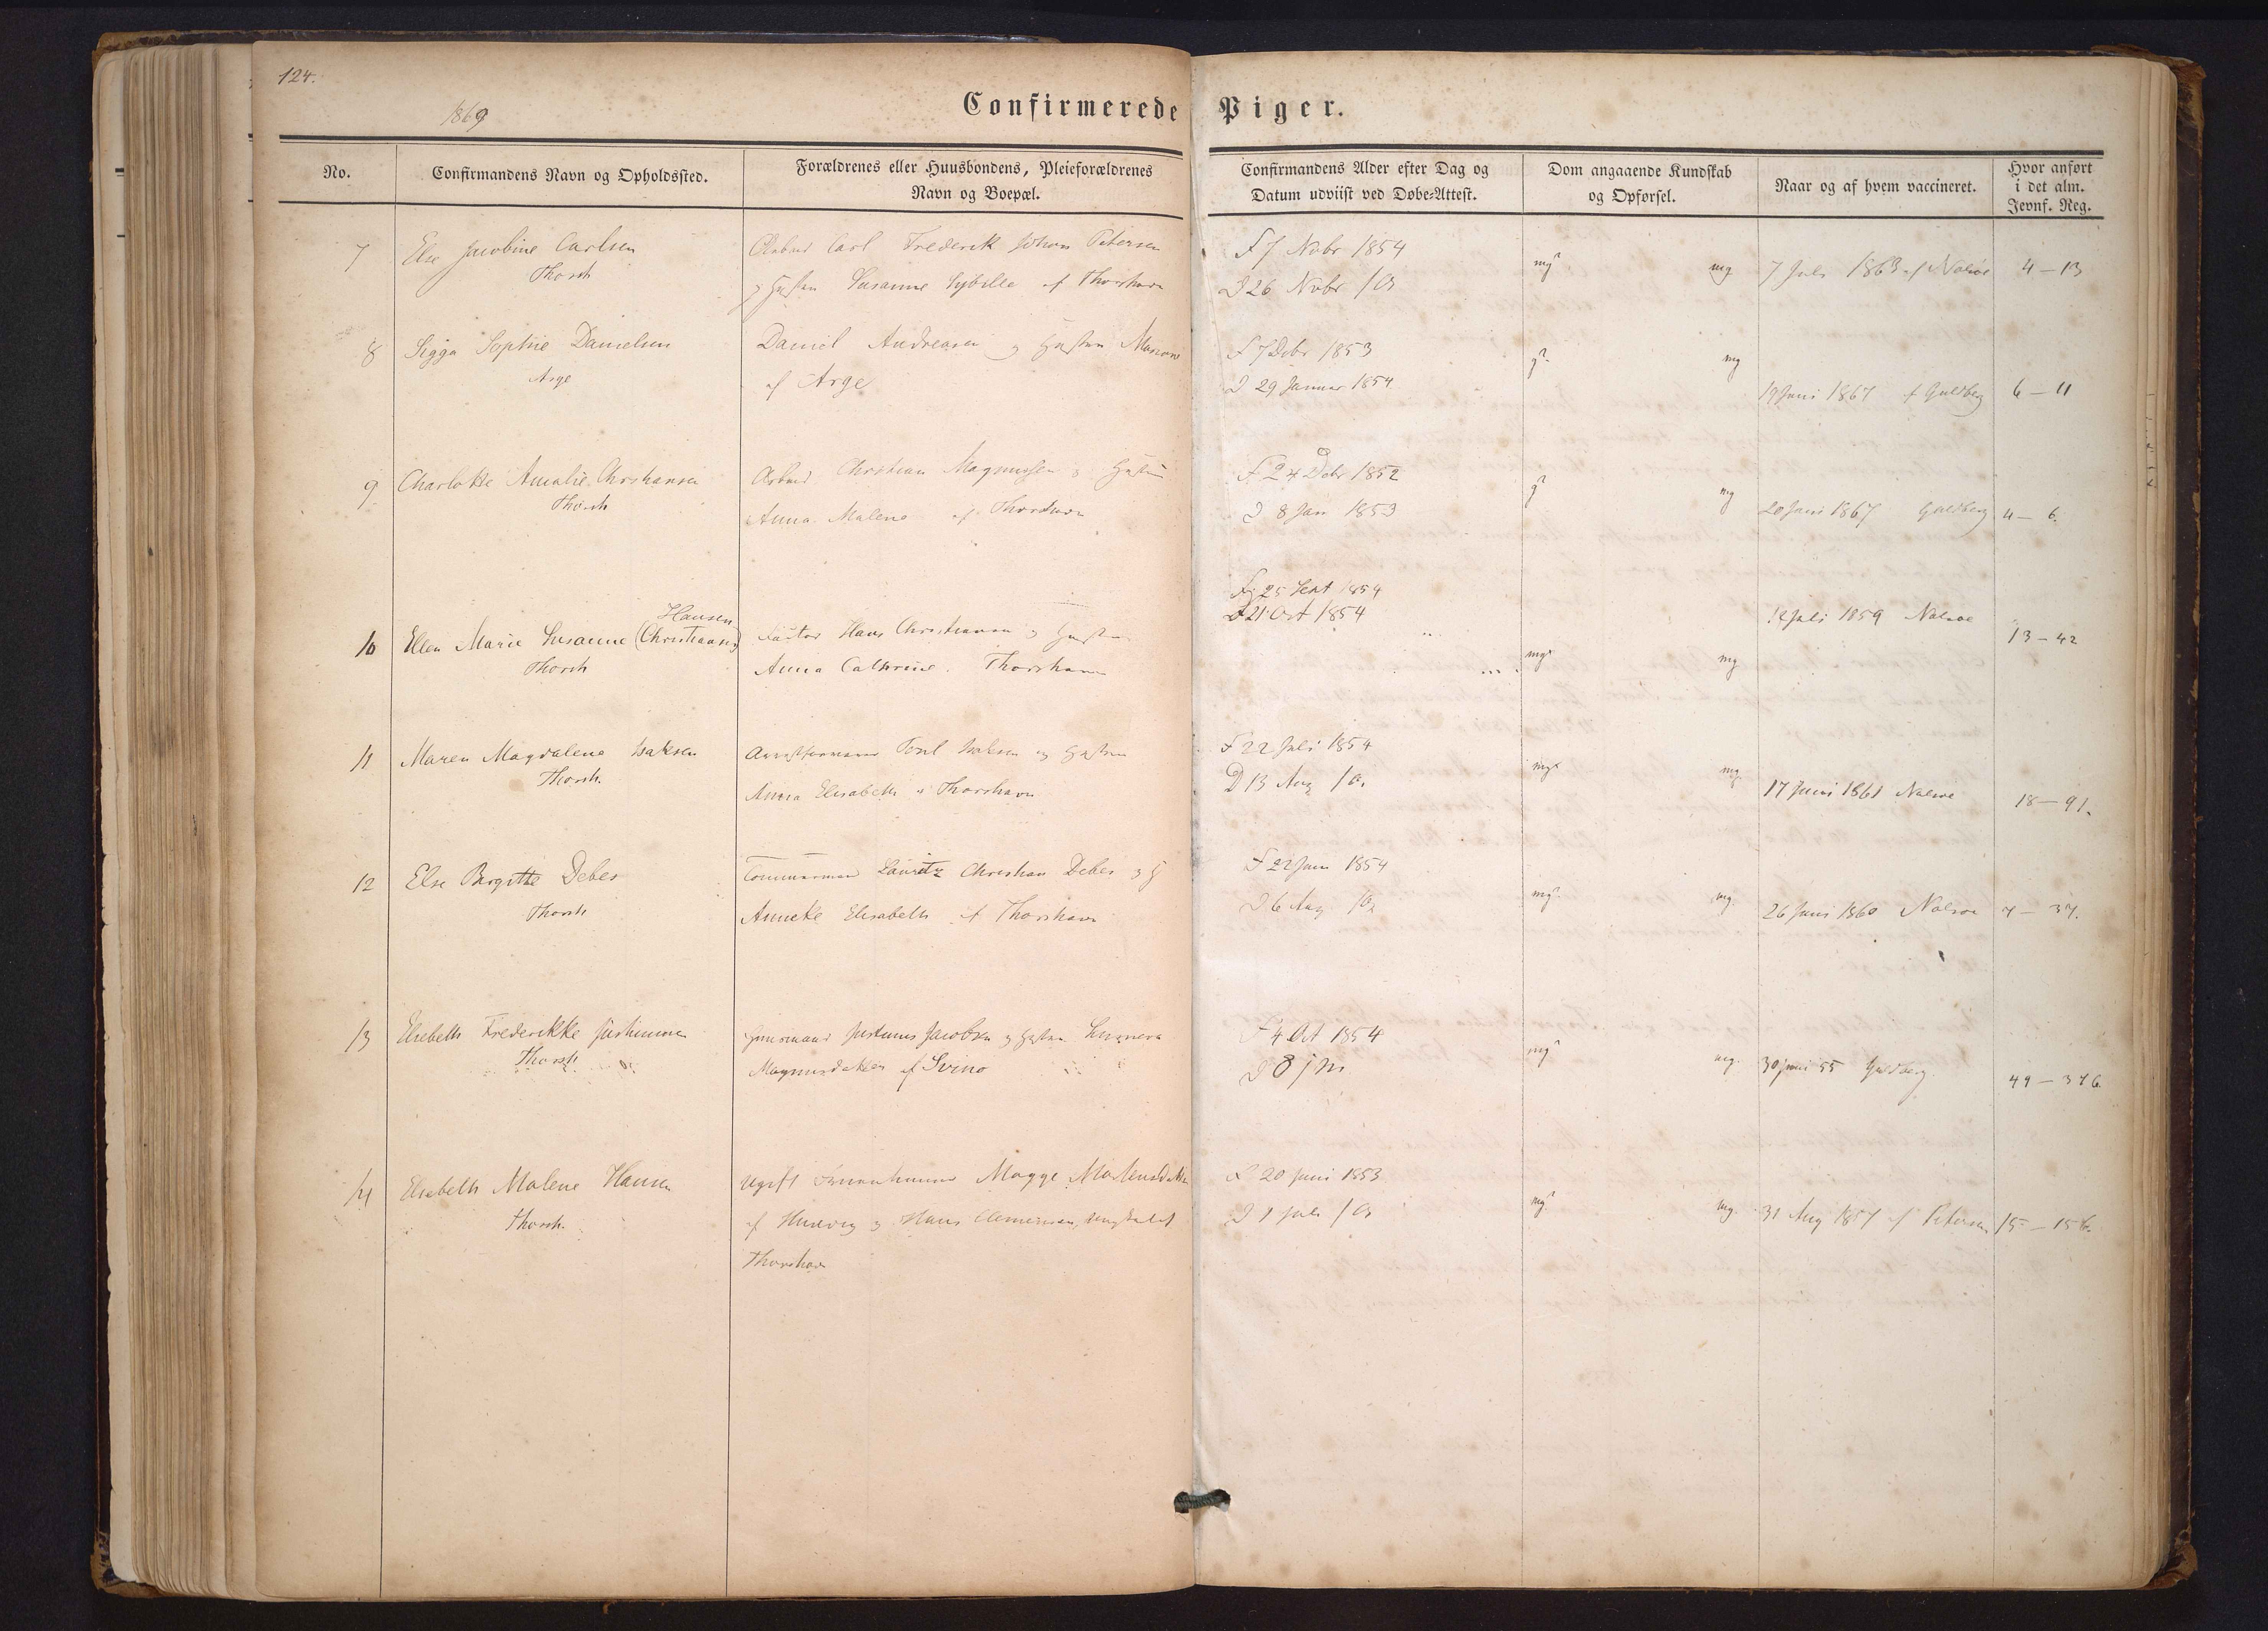 124.
1869
Confirmerede Piger.
No.
Confirmandens Navn og Opholdssted.
Forældrenes eller Huusbondens, Pleieforældrenes
Navn og Boepæl.
Confirmandens Alder efter Dag og
Datum udviist ved Døbe-Attest.
Dom angaaende Kundskab
og Opførsel.
Naar og af hvem vaccineret.
Hvor anført
i det alm.
Jevnf. Reg.
7
Else Jacobine Carlsen
Thorsh
Carl Frederik Johan Petersen
Susanne Sybille af Thorshavn
F 7 Novbr 1854
D 26 Novbr
mg
mg
7 Juli 1863 af Nolsøe
4 – 13
8
Sigga Sophie Danielsen
Arge
Daniel Andreasen og Hustru
af Arge
F 7 Debr 1853
D 29 Januar 1854
g
mg
19 Juni 1867 af Guldberg
6 – 11
9
Charlotte Amalie Christiansen
Thorsh
Christian Magnussen og Hustru
Anna Malene af Thorshavn
F 24 Debr 1852
D 8 Jan 1853
g
mg
20 Juni 1867 Guldberg
4 – 6.
10
Hansen
Ellen Marie Susanne (Christiansen)
Thorsh
Factor Hans Christiansen og Hustru
Anna Cathrine. Thorshavn
F. 25 Sept 1854
D 21 Oct 1854
mg
mg
Juli 1859 Nolsøe
13 – 42
11
Maren Magdalene Isaksen
Thorsh.
Poul Isaksen og Hustru
Anna Elisabeth Thorshavn
F 22 Juli 1854
D 13 Aug
mg
mg
17 Juni 1861 Nolsøe
18 – 91.
12
Else Birgitte Debes
Thorsh
Tømmermand Lauritz Christian Debes og H
Anneke Elisabeth af Thorshavn
F 22 1854
D 6 Aug
mg
mg.
26 Juni 1860 Nolsøe
7 – 37.
13
Elsebeth Frederikke Justinussen
Thorsh
Huusmand Justinus Jacobsen og Hustru
Magnusdatter af Svinø
F 4 Oct 1854
D 8
mg
mg.
30 Juni 55 Guldberg
49 – 376
14
Elsebeth Malene Hansen
Thorsh.
Ugift Fruentimmer Magge Mortensdatter
af og Hans Clemensen, Ungkarl af
Thorshavn
F 20 Juni 1853
D 1 Juli
mg
mg.
31 Aug 1857 af Petersen
15 – 156.